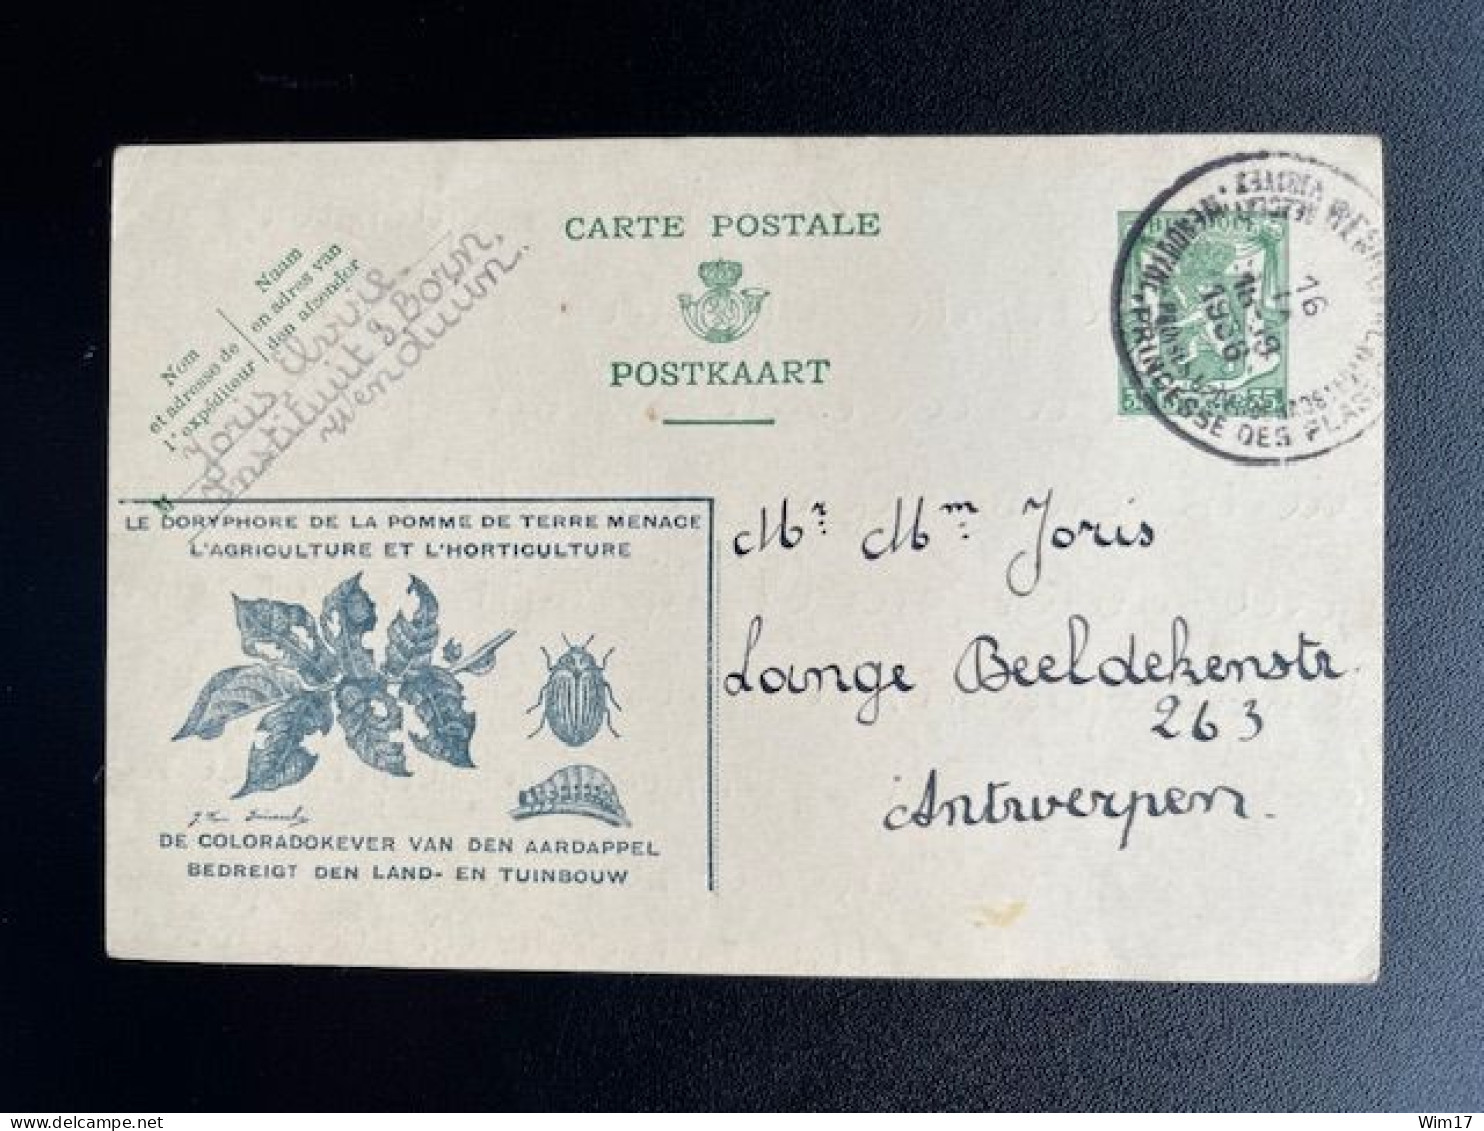 CARTE POSTALE
POSTKAART
Naam
en adres van
den afzender
Nom
et adresse de
l'expéditeur
Joris
Instituut
Wenduun.
1936
PRINCESSE DES PLAGES
35
LE DORYPHORE DE LA POMME DE TERRE MENACE
L'AGRICULTURE ET L'HORTICULTURE
DE COLORADOKEVER VAN DEN AARDAPPEL
BEDREIGT DEN LAND- EN TUINBOUW
Mr. Mm. Joris
Lange Beeldekenstr.
263
Antwerpen.
Wim17